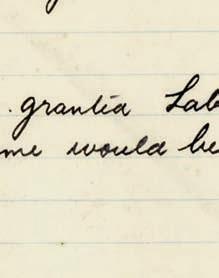 . grantia Lab
me would be